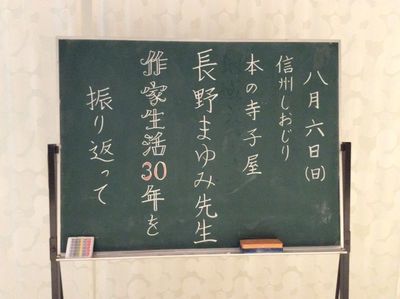 八月六日(日)
信州しおじり
本の寺子屋
長野まゆみ先生
作家生活30年を
振り返って